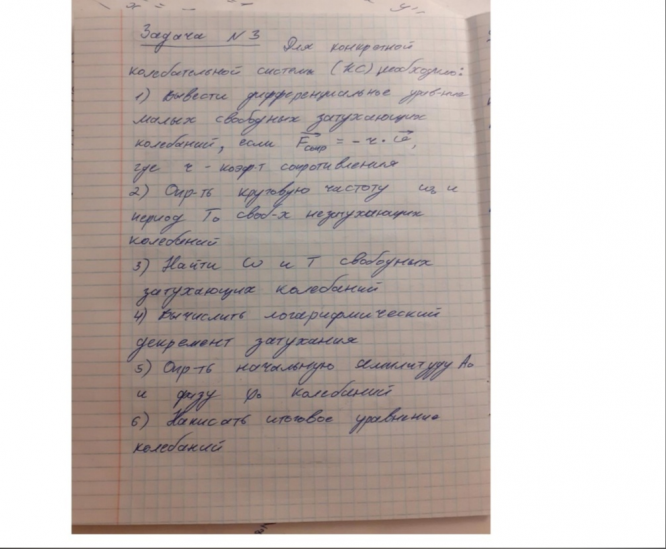 Задача N 3
Для конкретной
колебательной системы (КС) необходимо:
1) Вывести дифференциальное урав-ние
малых свободных затухающих
колебаний, если Fсопр = - r · υ,
где r - коэф-т сопротивления
2) Опр-ть круговую частоту ω₀ и
период T₀ своб-х незатухающих
колебаний
3) Найти ω и T свободных
затухающих колебаний
4) Вычислить логарифмический
декремент затухания
5) Опр-ть начальную амплитуду A₀
и фазу φ₀ колебаний
6) Написать итоговое уравнение
колебаний